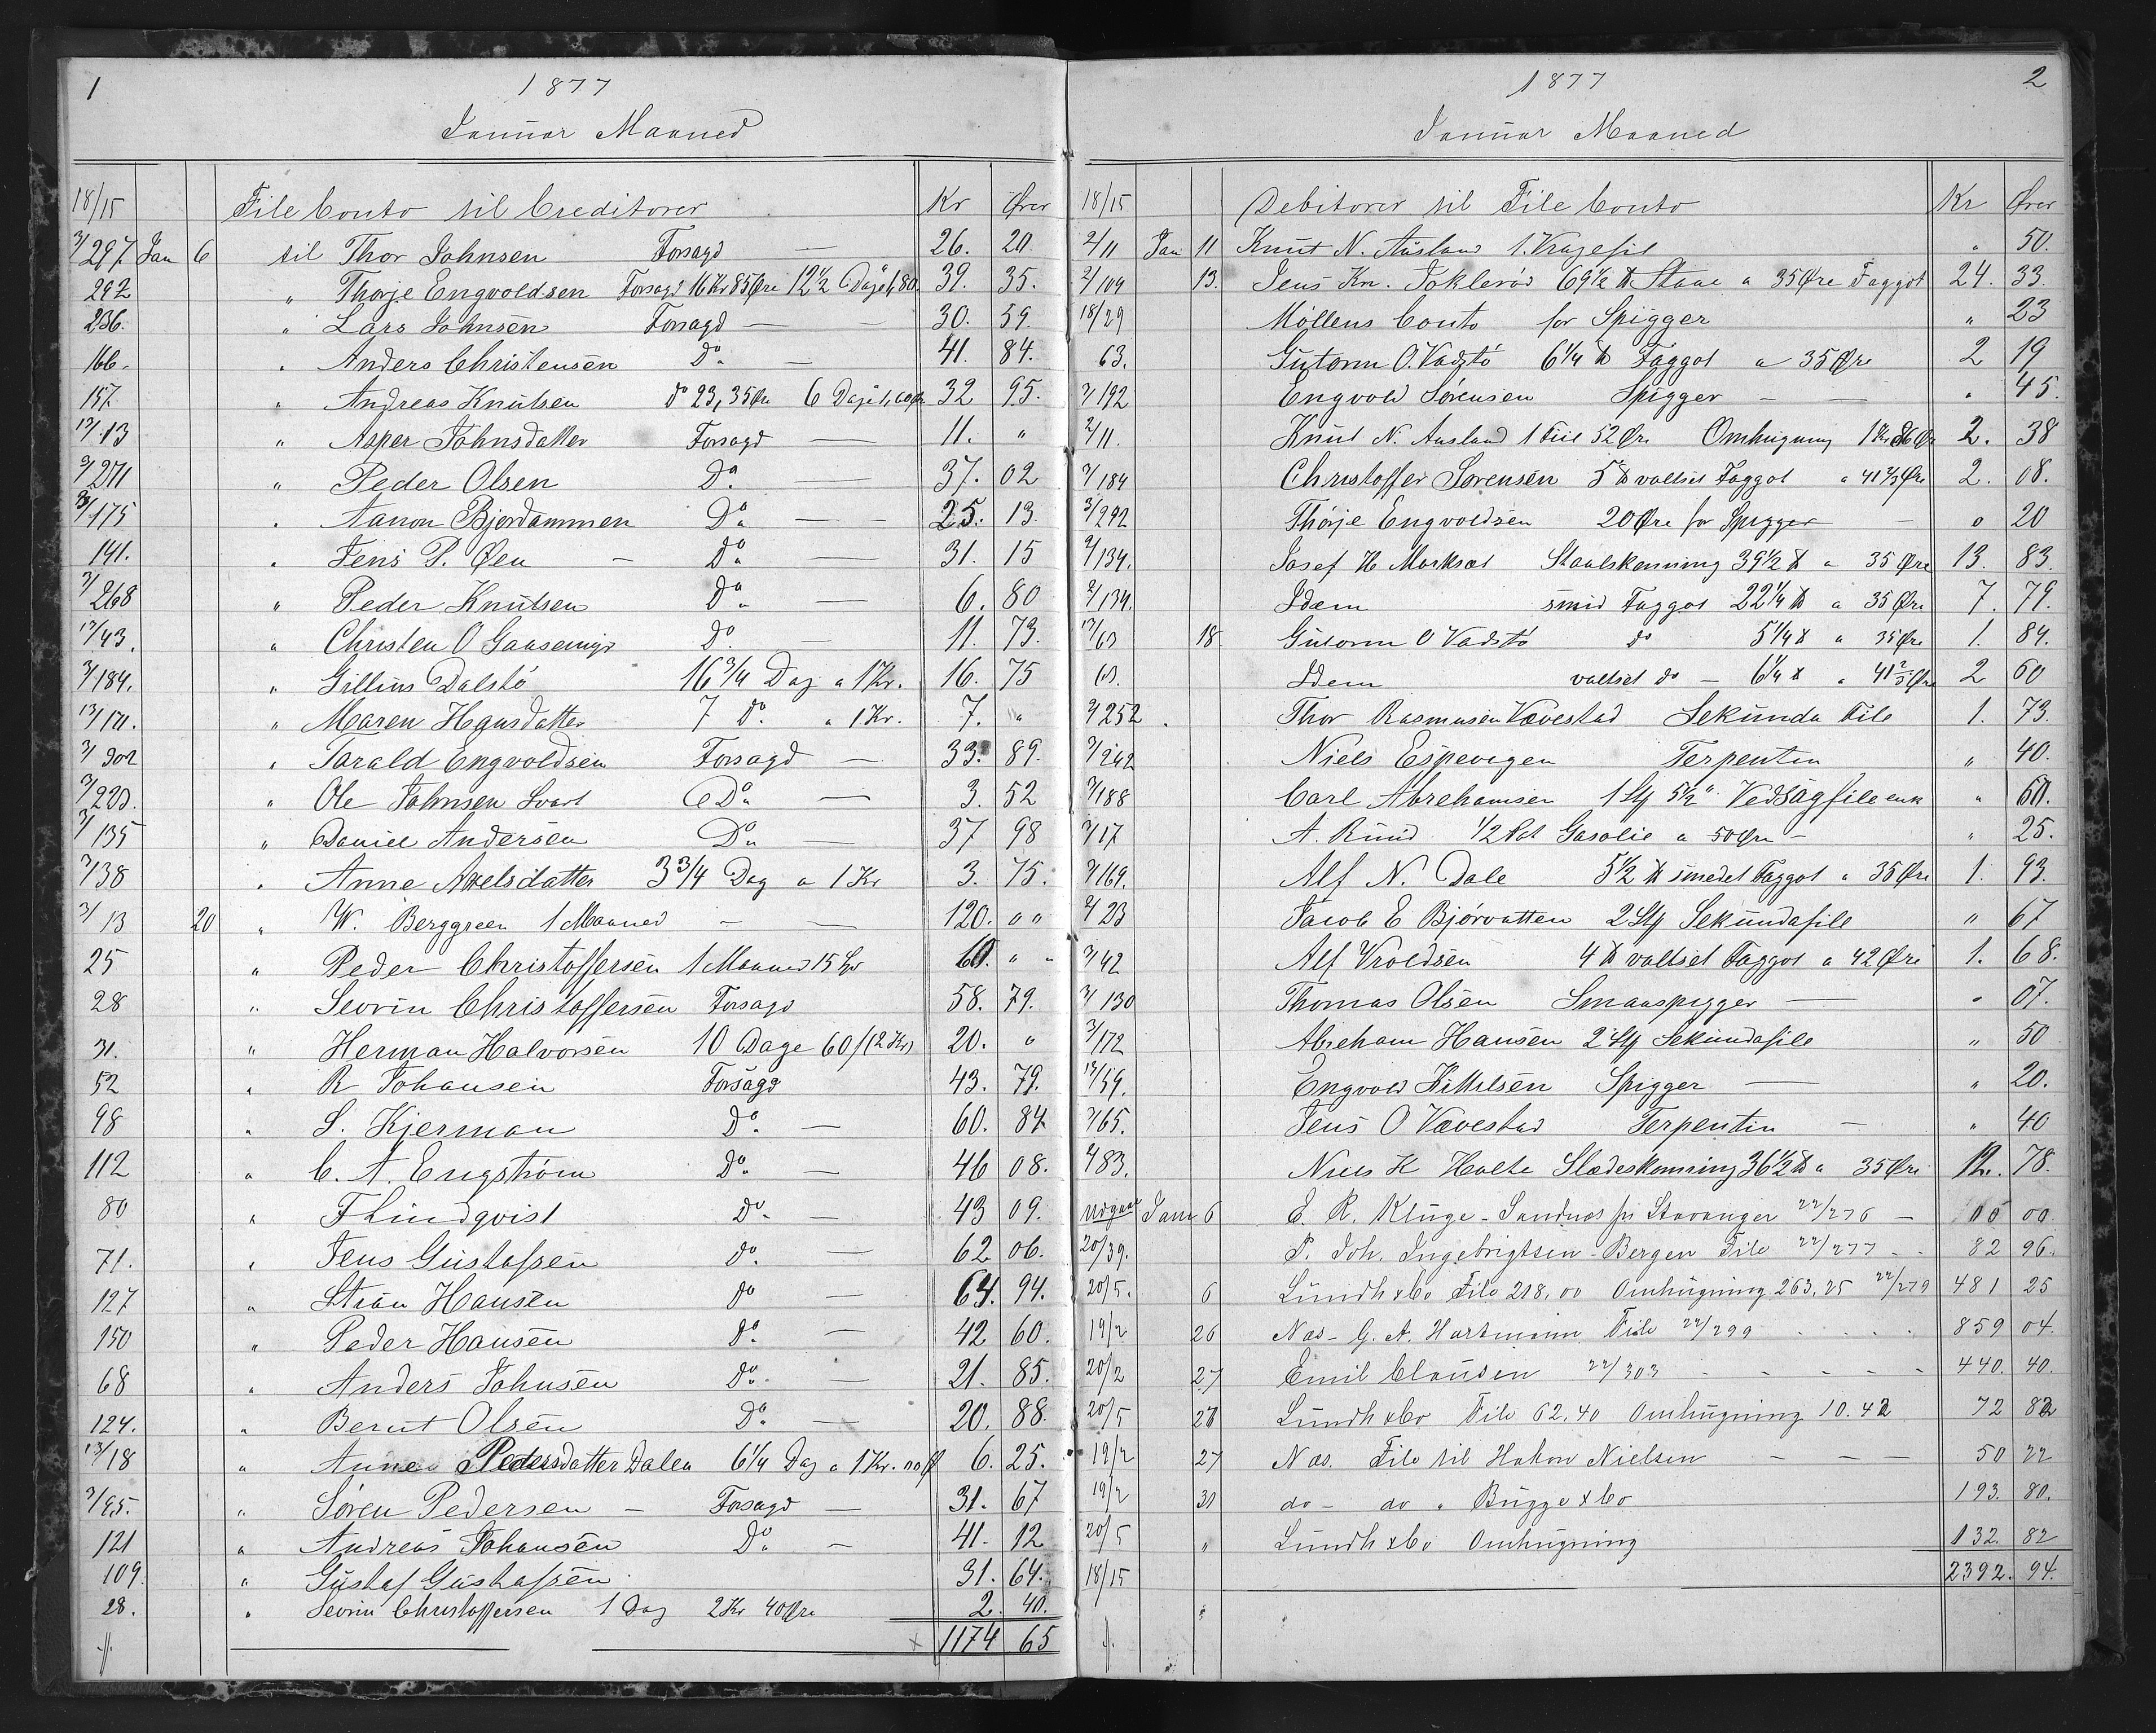 1
1877
Januar Maaned
18/15 File Conto til Creditorer Kr Ører
3/297. Jan 6 til Thor Johnsen Forsagd — 26. 20
292 " Thorje Engvoldsen Forsagd 16 Kr 85 Øre 12½ Dag á 1,80 39. 35.
236. " Lars Johnsen Forsagd — — 30. 59.
166. " Anders Christensen Do. — 41. 84.
157. " Andreas Knutsen do 23,35 Øre 6 Dag á 1,60 Øre 32 95.
13/13 " Asper Johnsdatter Forsagd — 11. "
3/271 " Peder Olsen Do — 37. 02
3/175 " Aanon Bjordammen Do — — 25. 13
141. " Jens P. Øen — Do — 31. 15
3/268 " Peder Knutsen Do — 6. 80
13/43. " Christen O Gaasemyr Do — 11. 73.
3/184. " Gillius Dalstö 16¾ Dag a 1 Kr. 16. 75
13/171. " Maren Hansdatter 7 Do. " 1 Kr. 7. "
3/302 " Tarald Engvoldsen Forsagd — 33. 89.
3/223. " Ole Johnsen Svart Do — 3. 52
3/135 " Daniel Andersen Do — 37 98
3/38 " Anne Axelsdatter 3¾ Dag a 1 Kr 3. 75.
3/13 20 " W. Berggreen 1 Maaned — — 120. " "
25 " Peder Christoffersen 1 Maaned 15 60. " "
28 " Sevrin Christoffersen Forsagd 58. 79.
31. " Herman Halvorsen 10 Dage 60/(2 Kr) 20. "
52 " R Johansen Forsagd 43. 79.
98 " S. Kjerman Do. — 60. 84
112 " C. A. Engström Do. — 46 08.
80 " F Lindqvist Do. — 43 09.
71. " Jens Gustafsen do. — 62 06.
127 " Stian Hansen do — 64. 94.
150 " Peder Hansen do. — 42 60.
68 " Anders Johnsen Do. — 21. 85.
124. " Bernt Olsen Do. — 20. 88.
13/18 " Anne Pedersdatter Dalen 6¼ Dag a 1 Kr. 6. 25.
3/95. " Søren Pedersen — Forsagd — 31. 67
121 " Andreas Johansen Do. — 41. 12
109. " Gustaf Gustafsen 31. 64.
28. " Sevrin Christoffersen 1 Dag 2 Kr 40 Øre 2. 40.
1174 65
2
1877
Januar Maaned
18/15 Debitorer til File Conto Kr Ører
2/11 Jan 11 Knut N. Ausland 1. Kragefil " 50.
2/109 13. Jens Kn. Joklerød 69½ ℔ Staae a 35 Øre Faggot 24. 33.
18/29 Møllens Conto for Spigger " 23
63. Gutorm O. Vadstö 6¼ ℔ Faggot a 35 Øre 2 19
3/192 Engvold Sørensen Spigger — — " 45.
2/11. Knut N. Ausland 1 Fiil 52 Øre Omhugning 1 Kr 86 Ør 2. 38
3/184 Christoffer Sørensen 5 ℔ valtset Faggot a 41⅔ Øre 2. 08.
3/292 Thorje Engvoldsen 20 Øre for Spigger — " 20
2/134. Josef H Marksæt Staalskenning 39½ ℔ a 35 Øre 13. 83.
2/134. Idem smid Faggot 22¼ ℔ a 35 Øre 7. 79.
13/63 18. Gutorm O Vadstö do 5¼ ℔ a 35 Øre 1. 84.
63. Idem valtset do — 6¼ ℔ a 41⅔ Øre 2 60
2/252. Thor Rasmusen Vævestad Sekunda File 1. 73.
3/242 Niels Espevigen Terpentin " 40.
3/188 Carl Abrehamsen 1 Stk 5½" Vedsagfile enk " 60.
3/17 A. Ruud ½ Pot Gasolie a 50 Øre — " 25.
2/169. Alf N. Dale 5½ ℔ smedet Faggot a 35 Øre 1. 93.
2/23 Jacob E Bjørvatten 2 Stk Sekundafile " 67
3/42 Alf Vroldsen 4 ℔ valtset Faggot a 42 Øre 1. 68.
3/130 Thomas Olsen Smaaspigger — " 07.
3/172 Abreham Hansen 2 Stk Sekundafile " 50
13/59. Engvold Kittelsen Spigger — " 20.
3/65. Jens O Vævestad Terpentin — " 40
2/83. Niels K Holte Slædeskenning 36½ ℔ a 35 Øre 12. 78.
Udgaar Janr 6 E. R. Kluge - Sandnæs pr Stavanger 22/276 — 00
20/39. P. Joh. Ingebrigtsen - Bergen File 22/277 - - 82 96.
20/5. 6 Lundh & Co File 218.00 Omhugning 263.25 22/279 481 25
19/2 26 Næs - G. A. Hartmann File 22/299 - - - - 859 04.
20/2 27 Emil Clausen 22/303 - - - - - 440. 40.
20/5 27 Lundh & Co File 62.40 Omhugning 10.42 72 82
19/2 27 Næs. File til Hakon Nielsen — — — 50 22
19/2 31 do — do " Bugge & Co 193. 80.
20/5 " Lundh & Co Omhugning 132. 82
18/15 2392. 94.